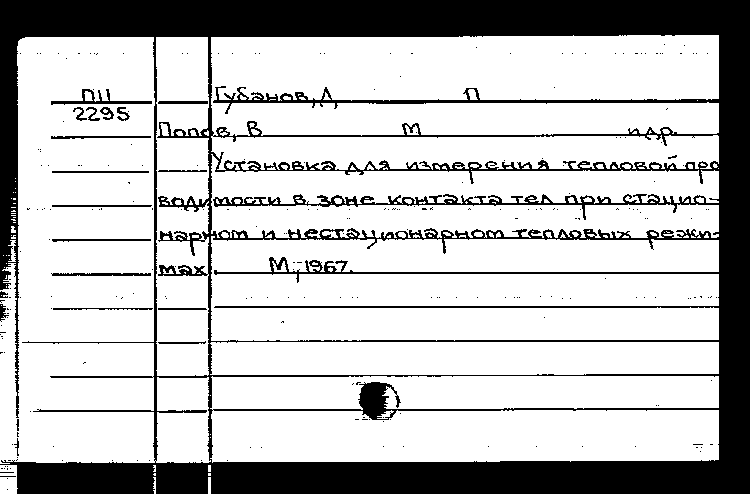 П11 Губанов, Л П
2295
Попов, В М и др.
Установка для измерения тепловой про
водимости в зоне контакта тел при стацио-
нарном и нестационарном тепловых режи-
мах. М., 1967.